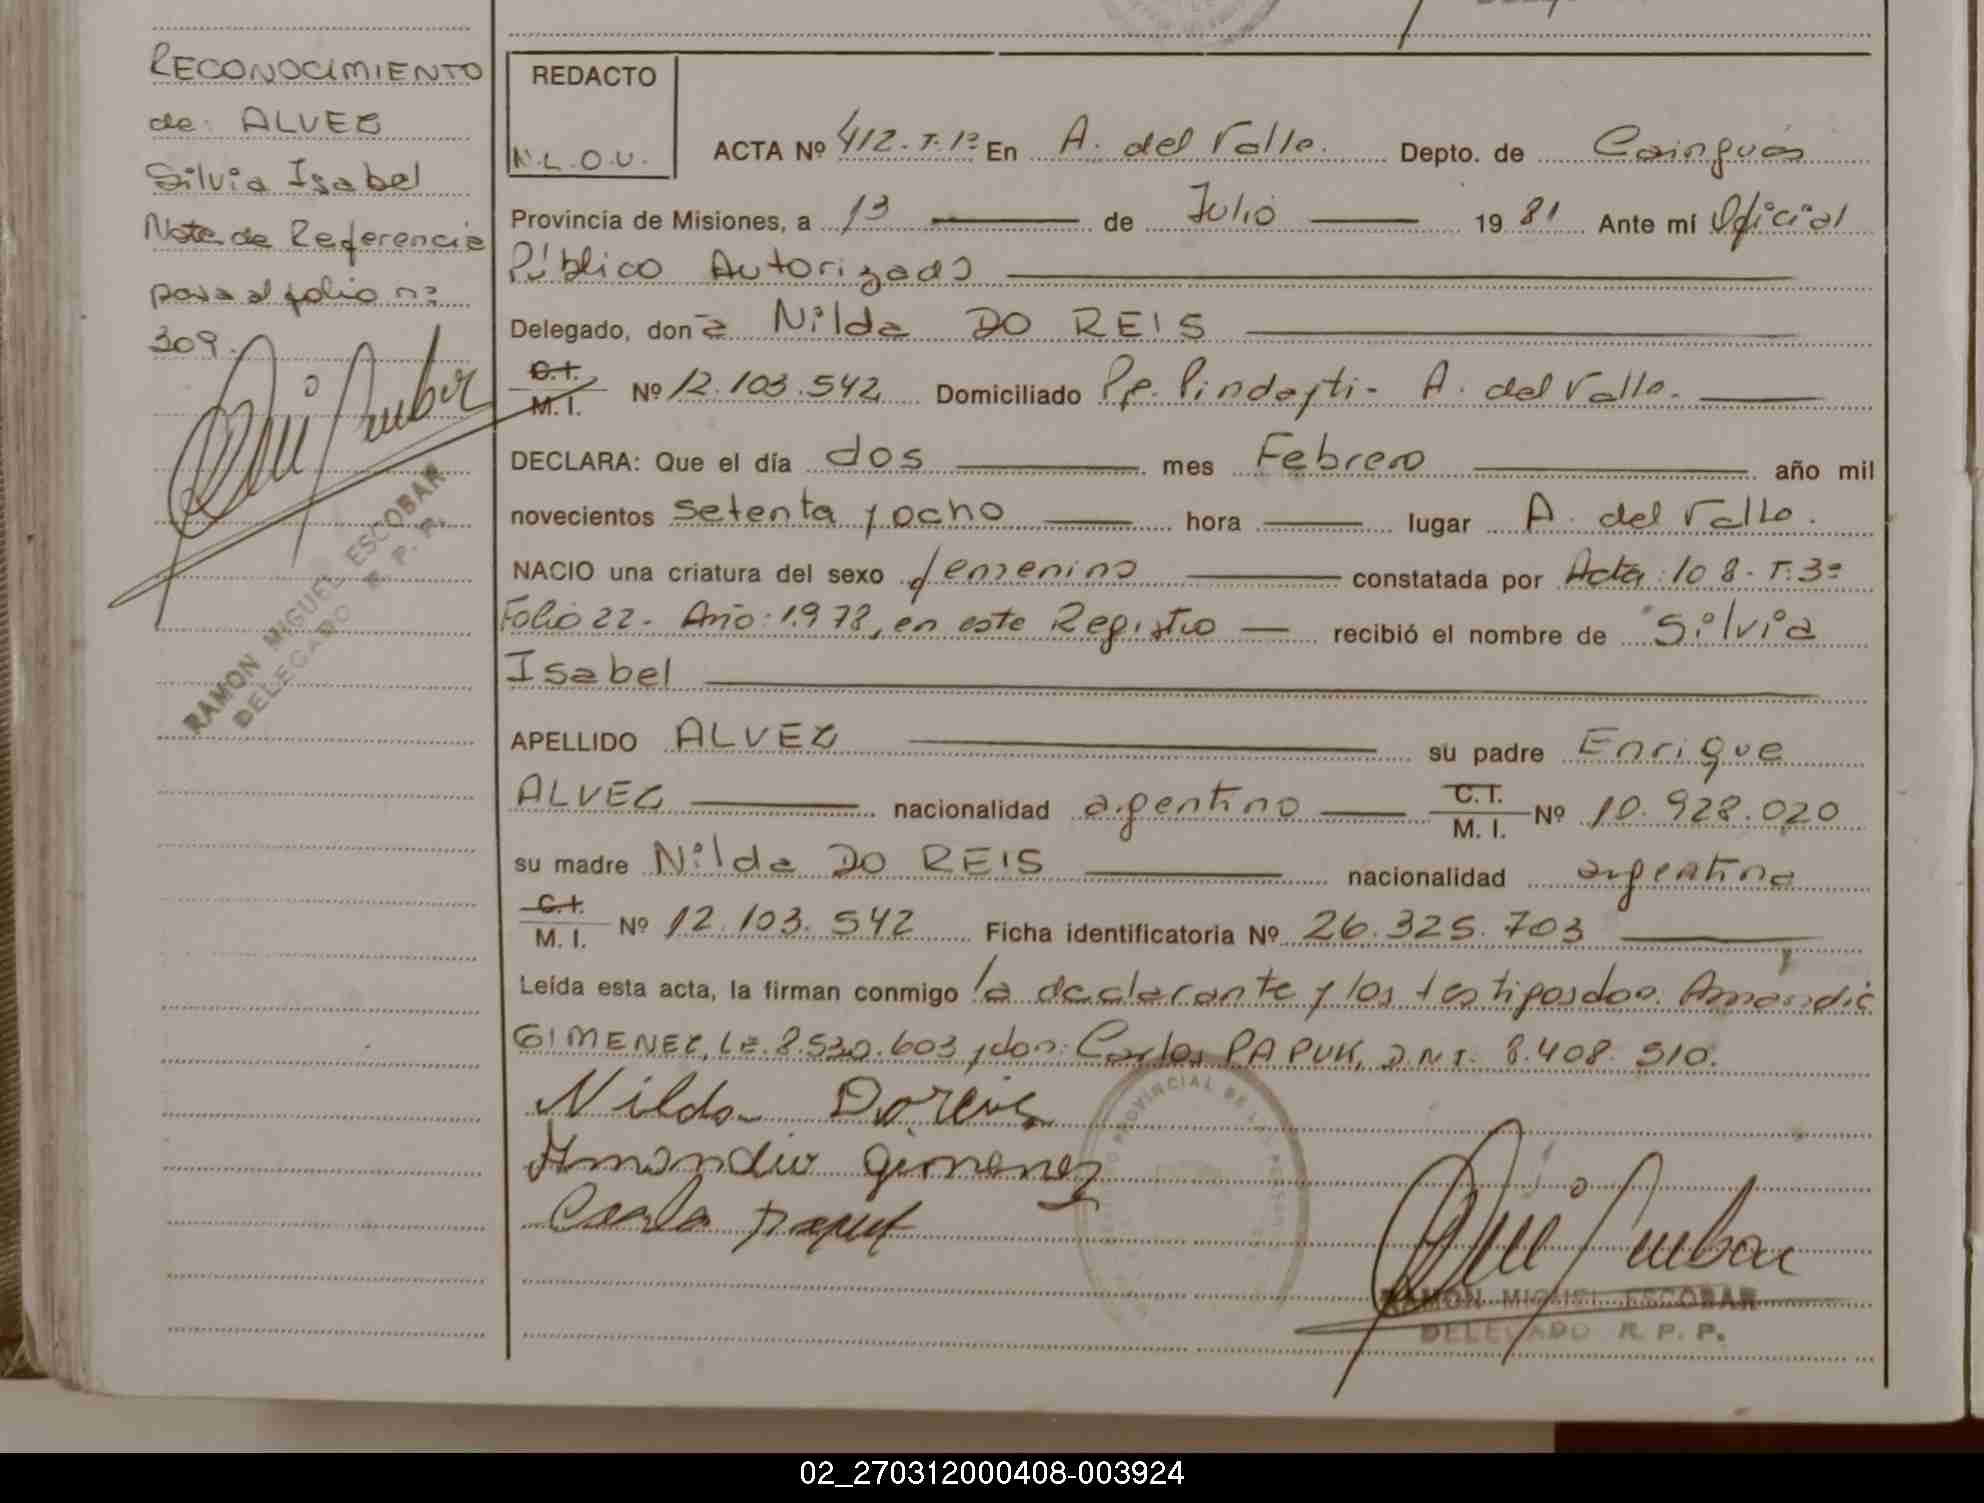 RECONOCIMIENTO
de ALVEZ
Silvia Isabel
Nota de Referencia
pasa al folio nº
309.
RAMON MIGUEL ESCOBAR
DELEGADO R. P. P.
REDACTO
N.L.O.U.
ACTA Nº 412. T. 1º En A. del Valle. Depto. de Cainguás
Provincia de Misiones, a 13 de Julio 19 81 Ante mí Oficial
Público Autorizado
Delegado, don a Nilda DO REIS
C.I. M. I. Nº 12.103.542 Domiciliado Pje. Pindayti - A. del Valle.
DECLARA: Que el día dos mes Febrero año mil
novecientos setenta y ocho hora lugar A. del Valle.
NACIO una criatura del sexo femenino constatada por Acta: 108. T. 3º
Folio 22 - Año: 1.978, en este Registro recibió el nombre de Silvia
Isabel
APELLIDO ALVEZ su padre Enrique
ALVEZ nacionalidad argentino C. I. M. I. Nº 10.928.020
su madre Nilda DO REIS nacionalidad argentina
C.I. M. I. Nº 12.103.542 Ficha identificatoria Nº 26.325.703
Leída esta acta, la firman conmigo la declarante y los testigos don: Amandio
GIMENEZ, L.E. 8.530.603 y don: Carlos PAPUK, D.N.I. 8.408.510.
Nilda Doreis
Amandio gimenez
Carlo Papuk
PROVINCIAL DE LAS PERSONAS
RAMON MIGUEL ESCOBAR
DELEGADO R. P. P.
02_270312000408-003924